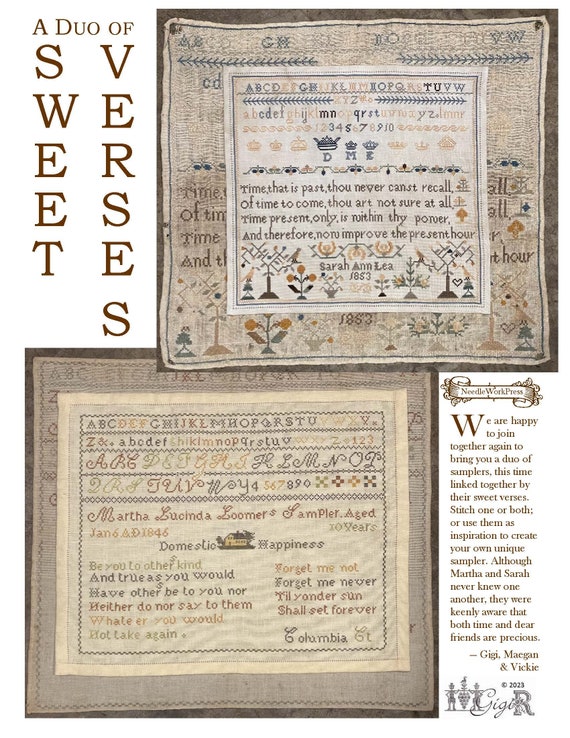 A DUO OF
SWEET
VERSES
AB GH IO TU
cd
ABCDEFGHIJKLMNOPQRSTUVW
XYZ
abcdefghijklmnopqrstuvwxyz
12345678910
D M E
Time, that is past, thou never canst recall,
Of time to come, thou art not sure at all
Time present, only, is within thy power,
And therefore, now improve the present hour
Sarah Ann Lea
1853
Time,
Of tim
Time
And th
all,
all
hour
1853
ABCDEFGHIJKLMNOPQRSTUVWXY
Z& abcdefghiklmnopqrstuvwxyz 123
ABCDEFGHIJKLMNOP
QRSTUVWY4567890
Martha Lucinda Loomers Sampler, Aged
Jan 6 AD 1846 10 Years
Domestic Happiness
Be you to other kind
And true as you would
Have other be to you nor
Neither do nor say to them
Whate er you would
Not take again.
Forget me not
Forget me never
Til yonder sun
Shall set forever
Columbia Ct
NeedleWorkPress
We are happy
to join
together again to
bring you a duo of
samplers, this time
linked together by
their sweet verses.
Stitch one or both;
or use them as
inspiration to create
your own unique
sampler. Although
Martha and Sarah
never knew one
another, they were
keenly aware that
both time and dear
friends are precious.
— Gigi, Maegan
& Vickie
© 2023
Gigi R